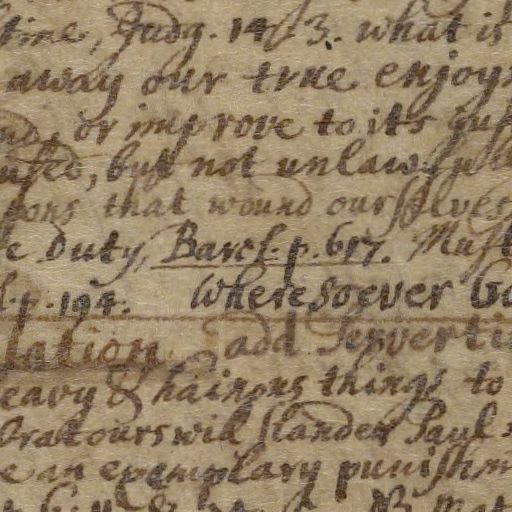 time, Judg. 14. 3. what is
away our true enjoy
or improve to its
but not unlawfull
pons that wound ourselves
e Duty, Barcl. p. 617. Must
l. p. 194. Wheresoever Go
lation add
eavy & hainous things to
Oratours will slander Paul
e an exemplary punishm